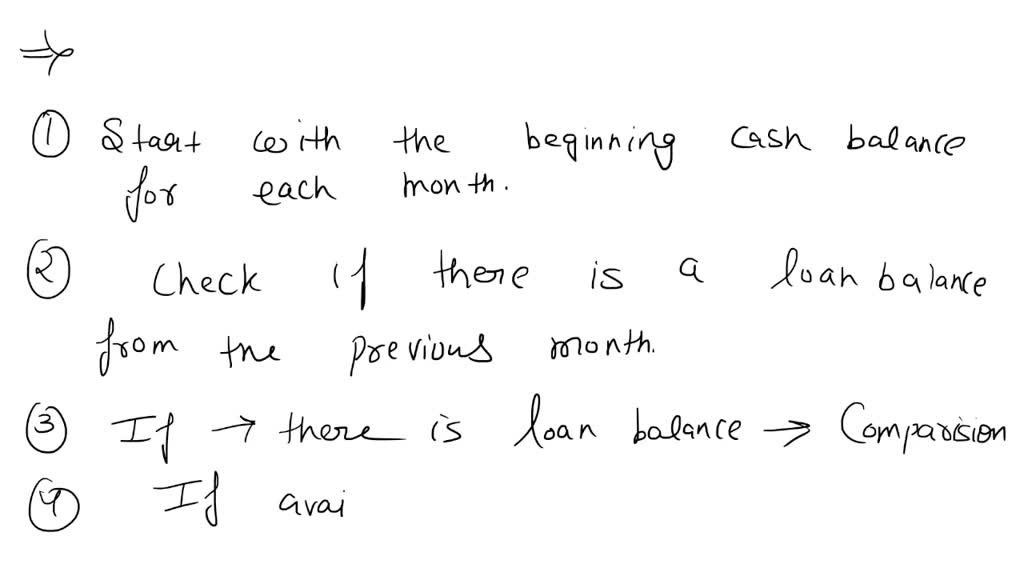 ⇒
① Start with the beginning cash balance
for each month.
② Check if there is a loan balance
from the previous month.
③ If → there is loan balance → Comparision
④ If avai